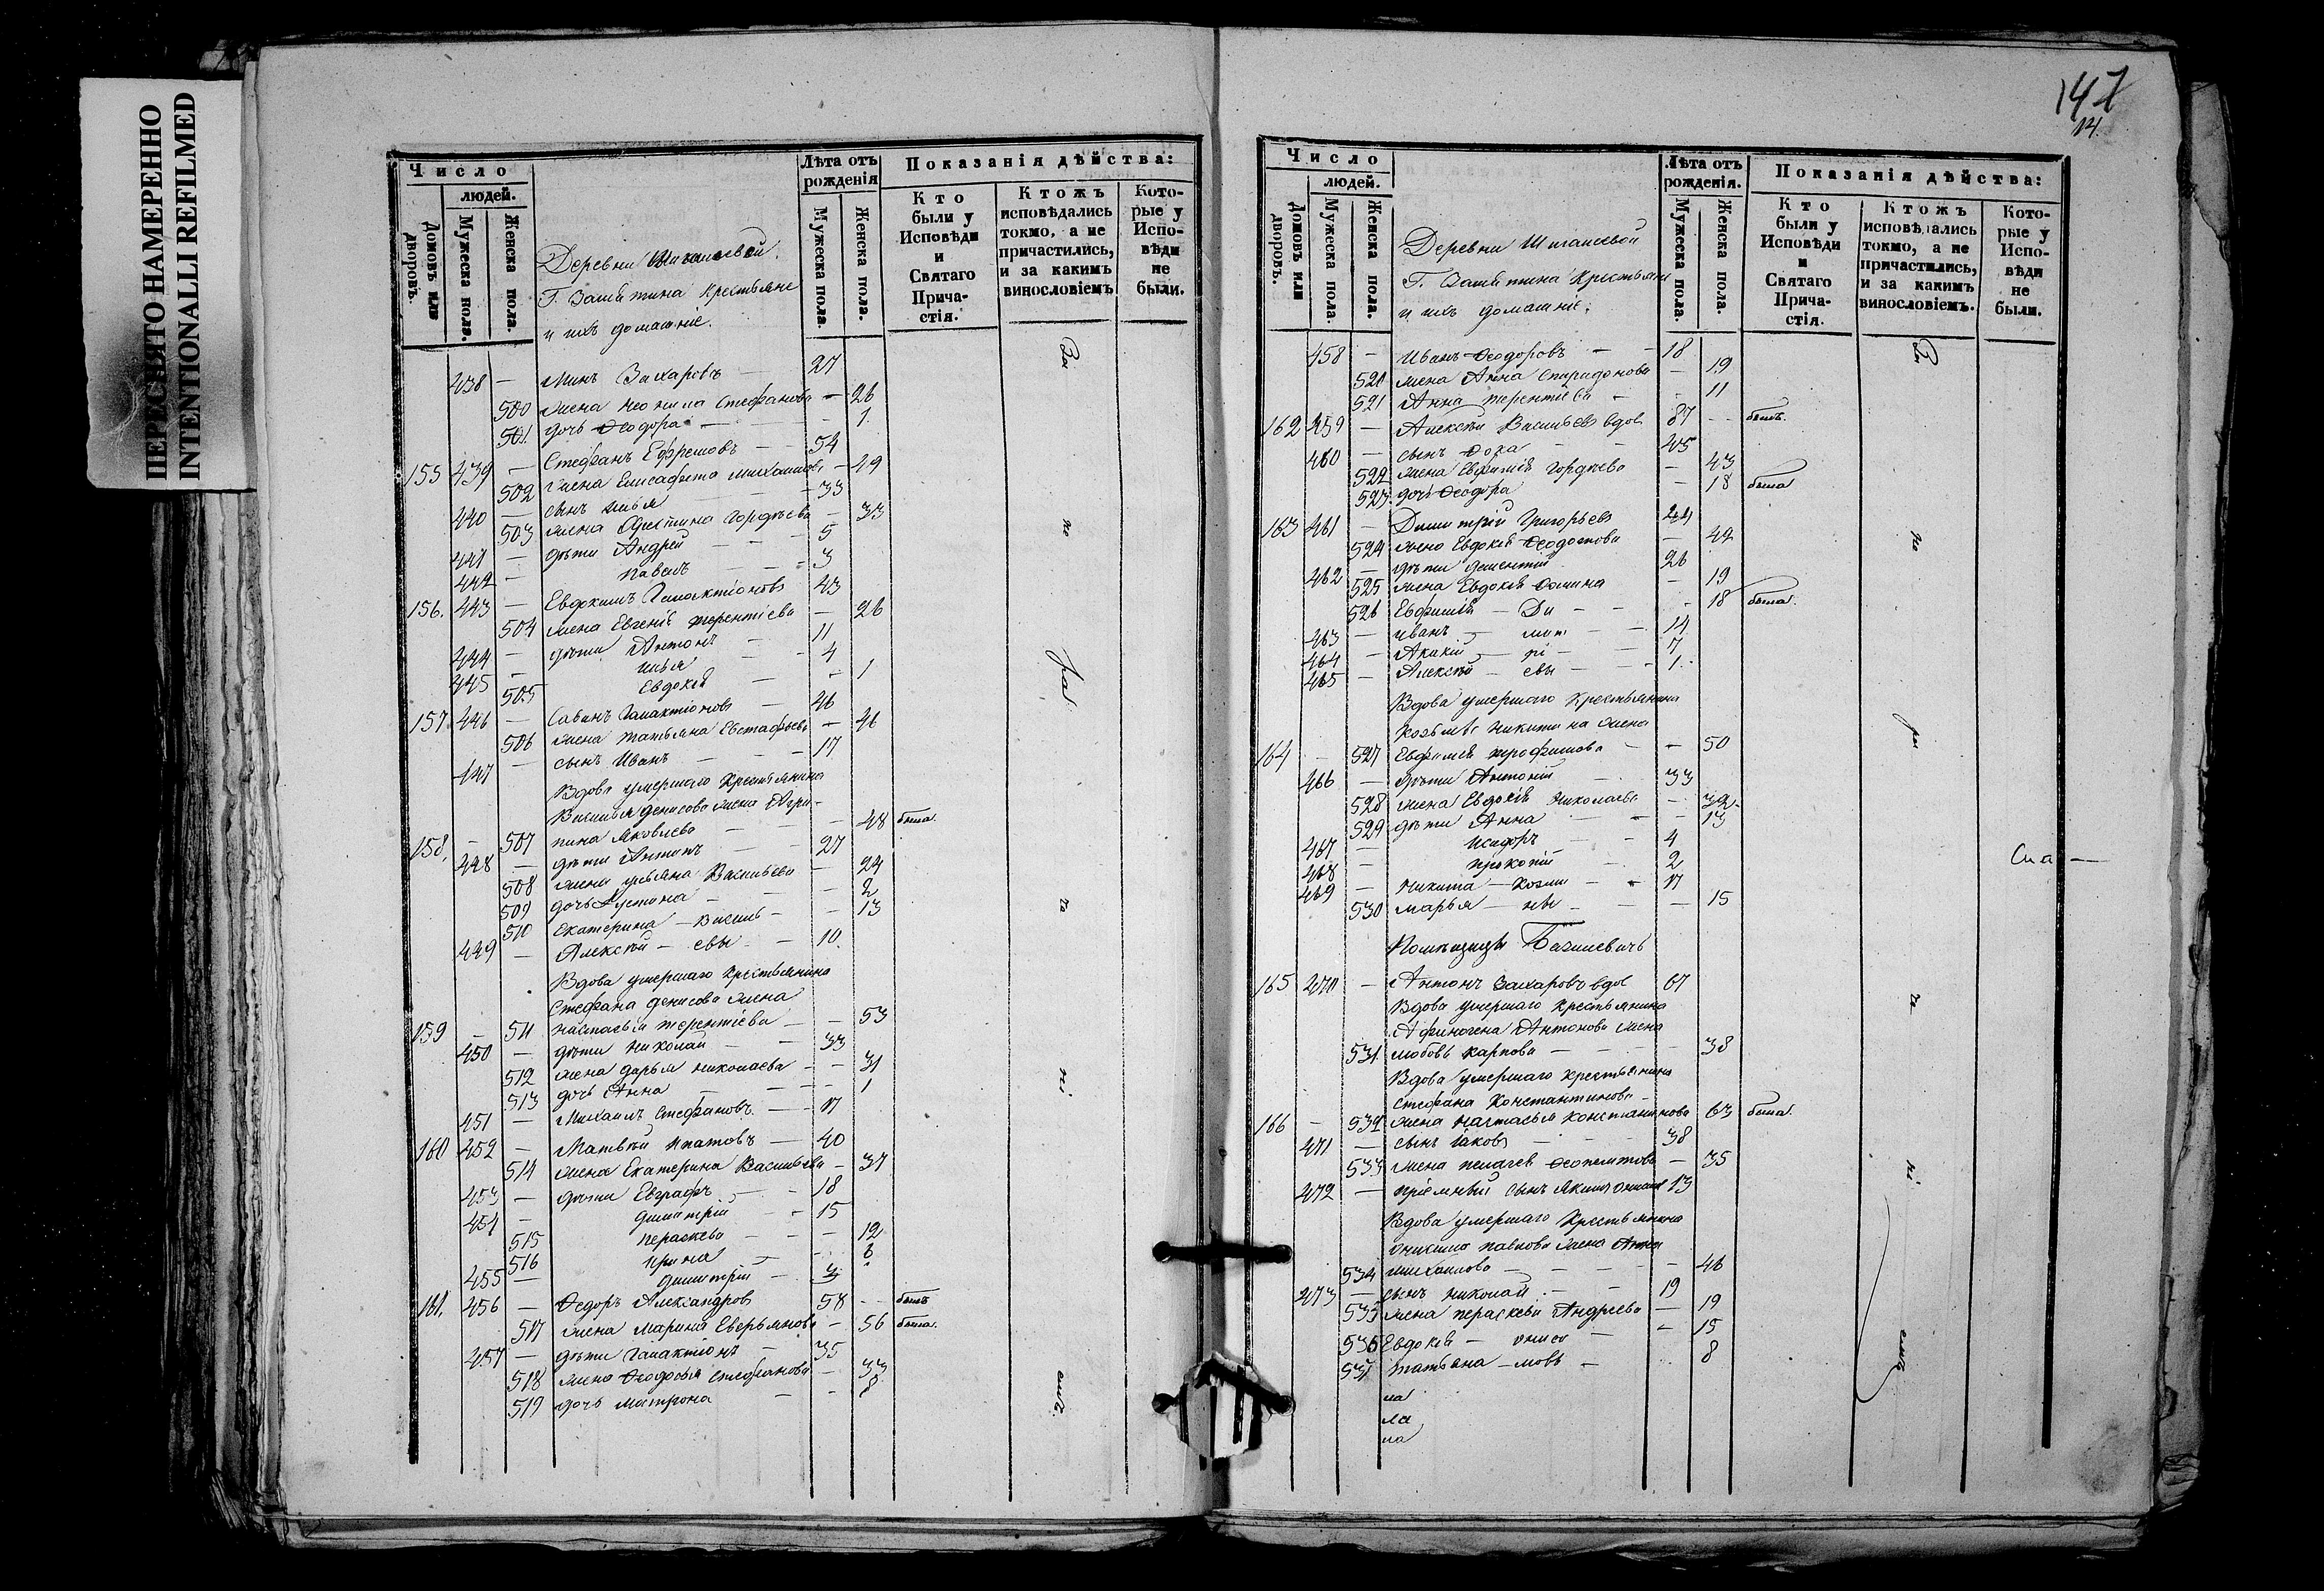 ПЕРЕСНЯТО НАМЕРЕННО
INTENTIONALLI REFILMED
Число
людей.
Домовъ или дворовъ.
Мужеска пола.
Женска пола.
Деревни
Г. Крестьяне
и ихъ домашніе.
Лѣта отъ рожденія
Мужеска пола.
Женска пола.
Показанія дѣйства:
Кто были у Исповѣди и Святаго Причастія.
Ктожъ исповѣдались токмо, а не причастились, и за какимъ винословіемъ
Которые у Исповѣди не были.
438 — Минъ Захаровъ — 27
500 жена Неонила Стефанова — 26
501. дочь Феодора — 1.
155 439 — Стефанъ Ефремовъ — 54
502 жена Елисафета Михайлова — 49
440 — сынъ Илья — 33
503 жена Гордѣева — 33
441 — дѣти Андрей — 5
442 — Павелъ — 3
156. 443 — Евдокимъ Галактіоновъ 43
504 жена Евгенія Терентіева — 26
444 — дѣти Антонъ — 11
445 — Илья — 4
505 Евдокія — 1
157 446 — Савинъ Галактіоновъ — 46
506 жена Татьяна Евстафьева — 46
447 — сынъ Иванъ — 17
Вдова умершаго Крестьянина
Василья Денисова жена Агри-
158. — 507 пина Яковлева — 48 была.
448 — дѣти Антонъ — 27
508 жена Ульяна Васильева — 24
509 дочь Устина — 2
510 Екатерина — Василь — 13
449 — Алексѣй — евы — 10.
Вдова умершаго Крестьянина
Стефана Денисова жена
159 — 511 Настасья Терентіева — 53
450 — дѣти Николай — 33
512 жена Дарья Николаева — 31
513 дочь Анна — 1
451 — Михаилъ Стефановъ — 17
160 452 — Матвѣй Ипатовъ — 40
514 жена Екатерина Васильева — 37
453 — дѣти Евграфъ — 18
454 — Димитрій — 15
515 Параскева — 12
516 Ирина — 8
455 — Димитрій — 3
161. 456 — Федоръ Александровъ 58 — былъ
517 жена Марина Аверьянова — 56 была.
457 — дѣти Галактіонъ — 35
518 жена Феодосья Стефанова — 33
519 дочь Матрона — 8
147
14.
Число
людей.
Домовъ или дворовъ.
Мужеска пола.
Женска пола.
Деревни
Г. Крестьяне
и ихъ домашніе.
Лѣта отъ рожденія.
Мужеска пола.
Женска пола.
Показанія дѣйства:
Кто были у Исповѣди и Святаго Причастія.
Ктожъ исповѣдались токмо, а не причастились, и за какимъ винословіемъ.
Которые у Исповѣди не были.
458 — Иванъ Феодоровъ — 18
520 жена Анна Спиридонова — 19
521 Анна Терентіева — 11
162 459 — Алексѣй Васильевъ вдов 87 — былъ.
460 — сынъ Фома — 45
522 жена Евфимія Гордѣева — 43
523. дочь Феодора — 18 была
163 461 — Димитрій Григорьевъ 44
524 жена Евдокія Феодотова — 42
462 — дѣти Дементій 26
525 жена Евдокія Фомина — 19
526 Евфимія — Ди — 18 была.
463 — Иванъ — мит — 14
464 — Акакій — рі — 7
465 — Алексѣй — евы — 1.
Вдова умершаго Крестьянина
Козьмы Никитина жена
164 — 527 Евфимія Трофимова — 50
466 — дѣти Антоній — 33
528 жена Евдокія Николаева — 32
529 дѣти Анна — 13
467 — Исидоръ — 4
468 — Прокопій — 2
469 — Никита — Козми — 17
530 Марья — ны — 15
165 470 — Антонъ Захаровъ вдов 67
Вдова умершаго Крестьянина
Афиногена Антонова жена
531 Любовь Карпова — 38
Вдова умершаго Крестьянина
Стефана Константинова
166 — 532 жена Настасья Константинова 63 была.
471 — сынъ Іаковъ — 38
533 жена Пелагея — 35
472 — пріемный сынъ 13
Вдова умершаго Крестьянина
Онисима Павлова жена Анна
534 Михайлова — 46
473 — сынъ Николай — 19
535 жена Параскева Андреева — 19
536 Евдокія — Ониси — 15
537 Татьяна — мовы — 8